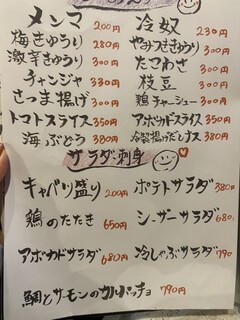 メンマ 200円 冷奴 230円
梅きゅうり 280円 やみつききゅうり 300円
激辛きゅうり 300円 たこわさ 300円
チャンジャ 330円 枝豆 300円
さつま揚げ 300円 鶏チャーシュー 300円
トマトスライス 350円 アボカドスライス 350円
海ぶどう 380円 冷製揚げだしナス 380円
サラダ・刺身
キャベツ盛り 200円 ポテトサラダ 380円
鶏のたたき 650円 シーザーサラダ 680
アボカドサラダ 680円 冷しゃぶサラダ 790
鯛とサーモンのカルパッチョ 790円